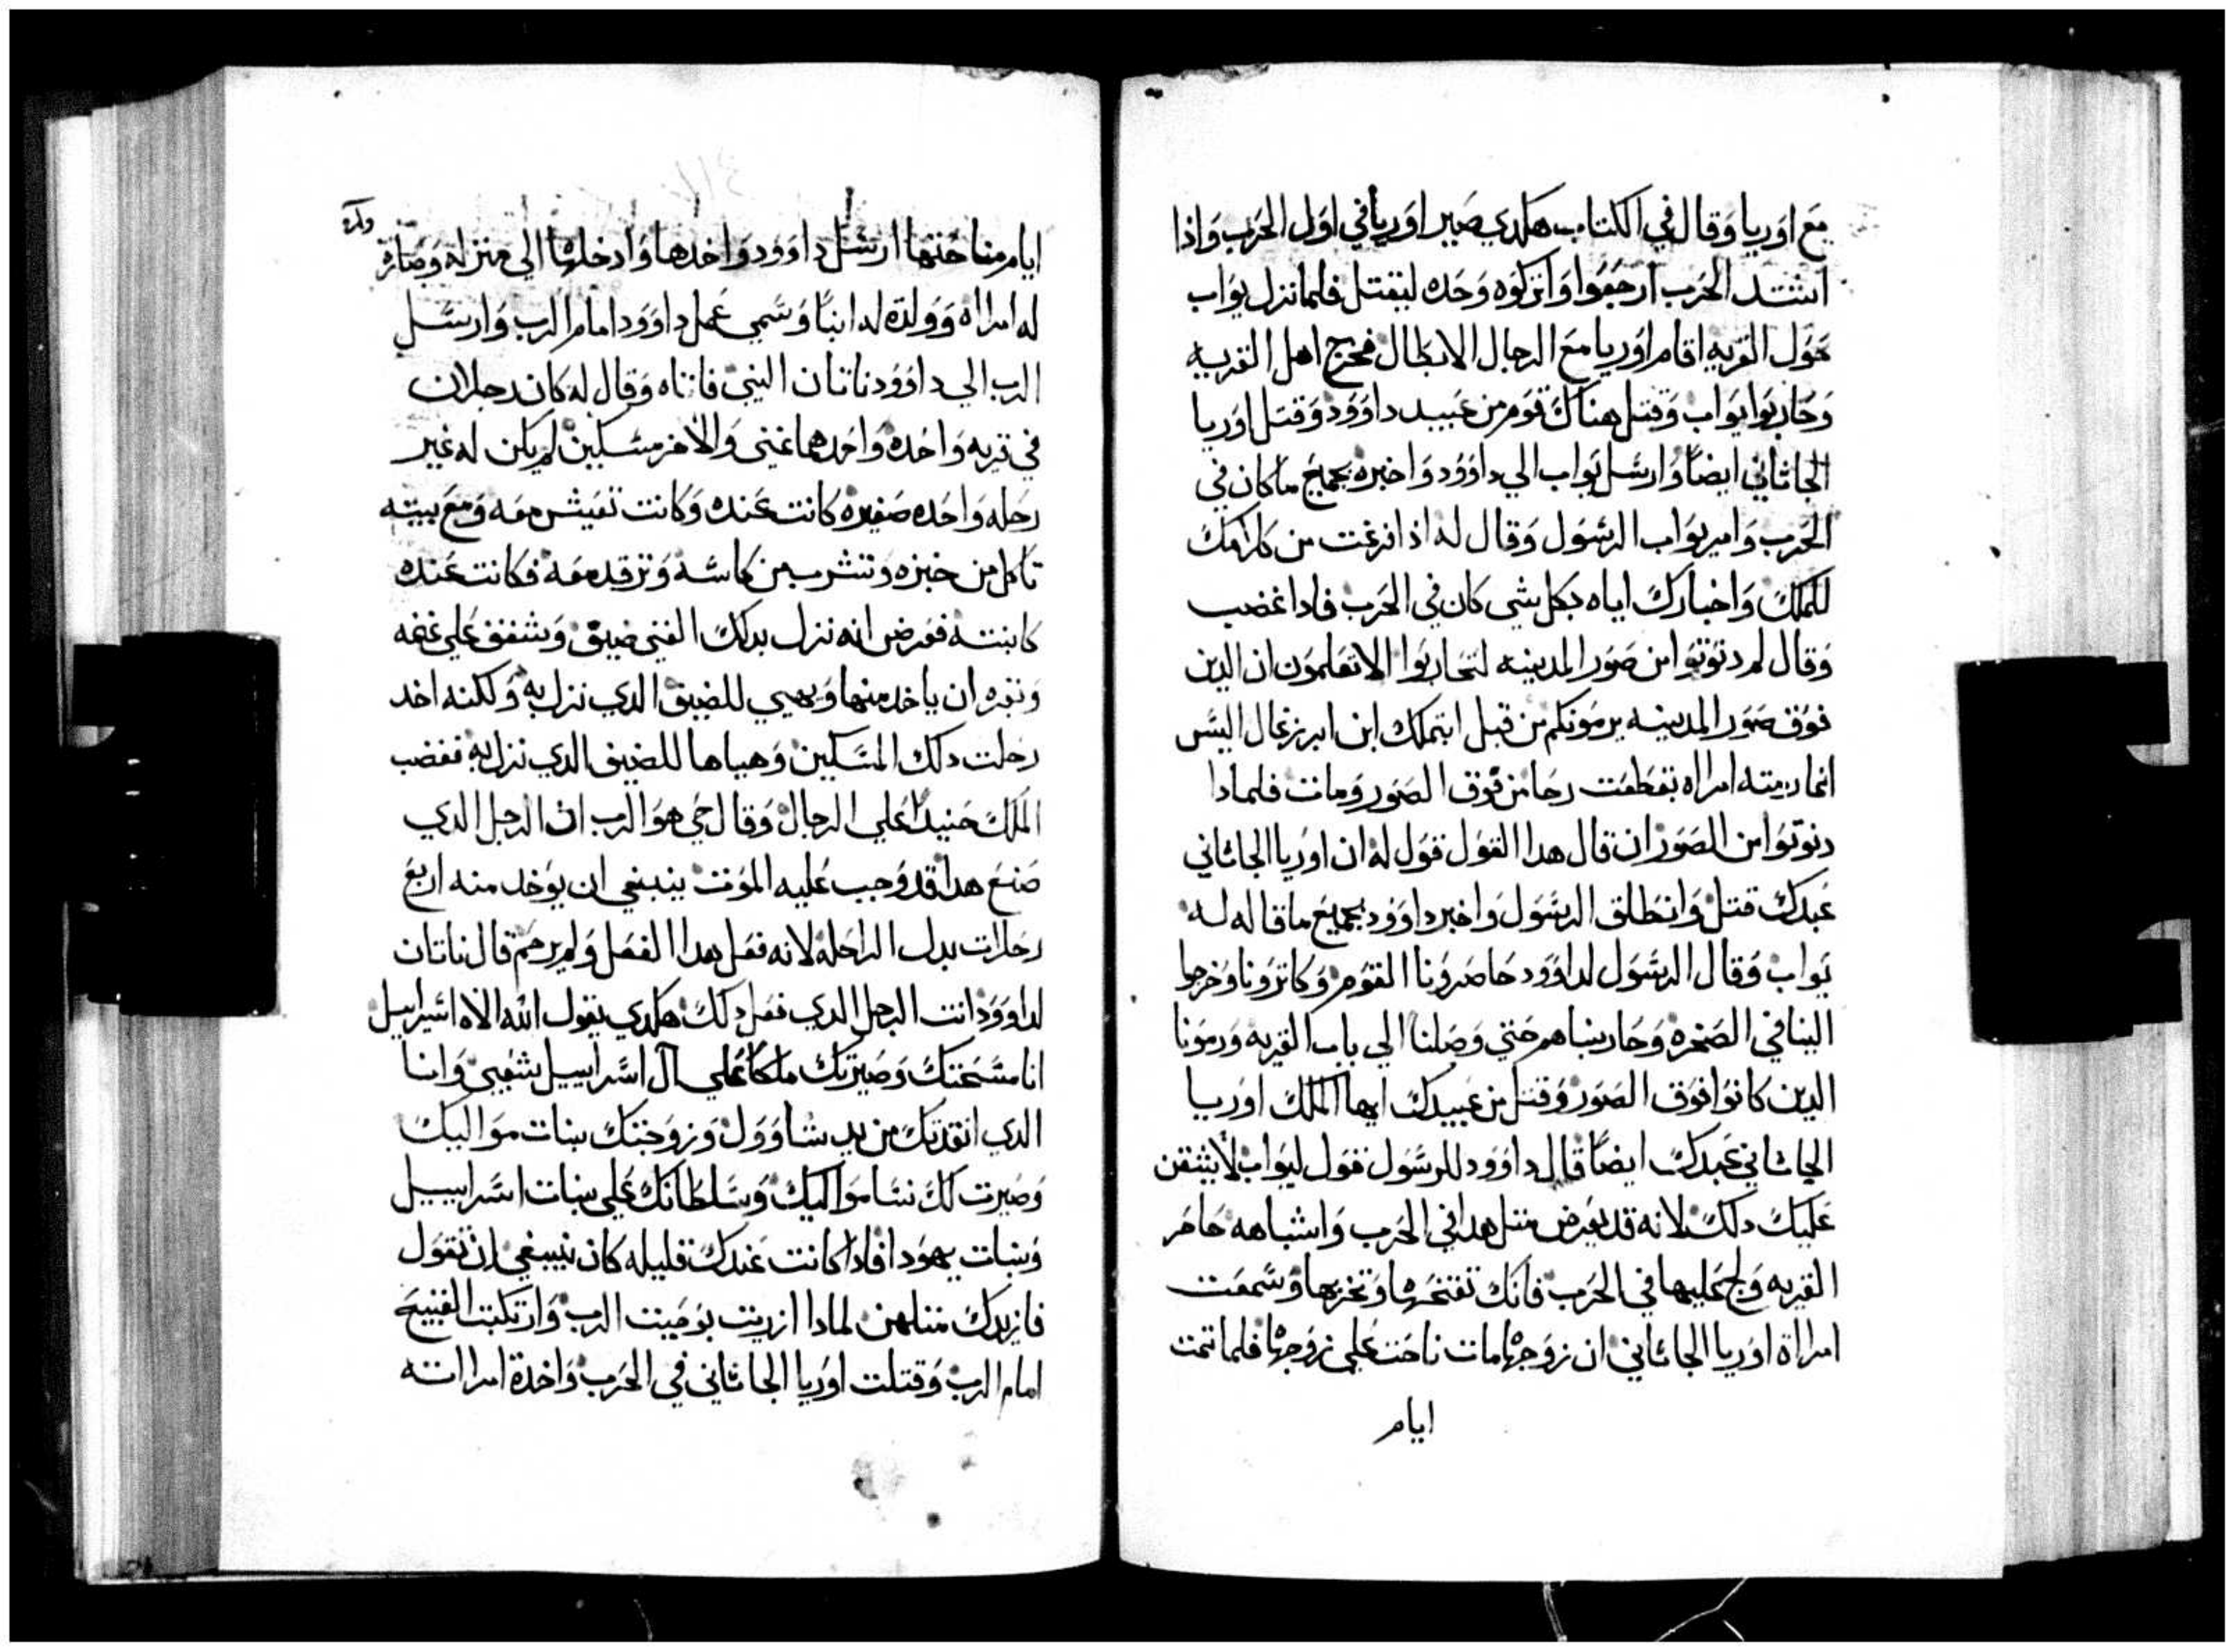 مع اوريا وقال في الكتاب هكدي صير اوريا في اول الحرب واذا
اشتد الحرب ارجعوا واتركوه وحده ليقتل فلما نزل يواب
حول القريه اقام اوريا مع الرجال الابطال فخرج اهل القريه
وحاربوا يواب وقتل هناك قوم من عبيد داوود وقتل اوريا
الحاثاني ايضا وارسل يواب الي داوود واخبره بجميع ماكان في
الحرب وامر يواب الرسول وقال له اذا فرغت من كلامك
للملك واخبارك اياه بكل شي كان في الحرب فادا غضب
وقال لم دنوتوا من صور المدينه لتحاربوا الا تعلمون ان الدين
فوق صور المدينه يرمونكم من قبل ابتملك ابن ابرزعال اليس
انما رمته امراه بقطعت رحا من فوق الصور ومات فلمادا
دنوتوا من الصور ان قال هدا القول فقول له ان اوريا الحاثاني
عبدك قتل وانطلق الرسول واخبر داوود بجميع ما قاله له
يواب وقال الرسول لداوود حاصرونا القوم وكاثرونا وخرجوا
الينا في الصخره وحاربناهم حتي وصلنا الي باب القريه ورمونا
الدين كانوا فوق الصور وقتل من عبيدك ايها الملك اوريا
الحاثاني عبدك ايضا قال داوود للرسول فقول ليواب لا يشقن
عليك دلك لانه قد يعرض متل هدا في الحرب واشباهه حاصر
القريه ولج عليها في الحرب فانك تفتحها وتخربها وسمعت
امراة اوريا الحاثاني ان زوجها مات ناحت علي زوجها فلما تمت
ايام
ايام مناحتها ارسل داوود واخدها وادخلها الي منزله وصارة
له امراه وولدة له ابنا وسمي عمل داوود امام الرب وارسل
الرب الي داوود ناتان النبي فاتاه وقال له كان رجلان
في قريه واحده واحدهما غني والاخر مسكين لم يكن له غير
رحله واحده صغيره كانت عنده وكانت تعيش معه ومع بيته
تاكل من خبزه وتشرب من كاسه وترقد معه فكانت عنده
كابنته فعرض انه نزل بدلك الغني ضيق وشفق علي غنمه
وبقره ان ياخد منها ويهيي للضيف الدي نزل به ولكنه اخد
رحلت دلك المسكين وهياها للضيف الدي نزل به فغضب
الملك حنيدا علي الرجال وقال حي هو الرب ان الرجل الدي
صنع هدا قد وجب عليه الموت ينبغي ان يوخد منه اربع
رحلات بدل الراحله لانه فعل بهدا الفعل ولم يرحم قال ناتان
لداوود انت الرجل الدي فعل دلك هكدي يقول الله الاه اسراييل
انا مسحتك وصيرتك ملكا علي ال اسراييل شعبي وانا
الدي انقدتك من يد شاوول وزوجتك بنات مواليك
وصيرت لك نسا مواليك وسلطانك علي بنات اسراييل
وبنات يهودا فادا كانت عندك قليله كان ينبغي ان تقول
فازيدك متلهن لمادا ازريت بوصيت الرب وارتكبت القبيح
امام الرب وقتلت اوريا الحاثاني في الحرب واخدة امراته